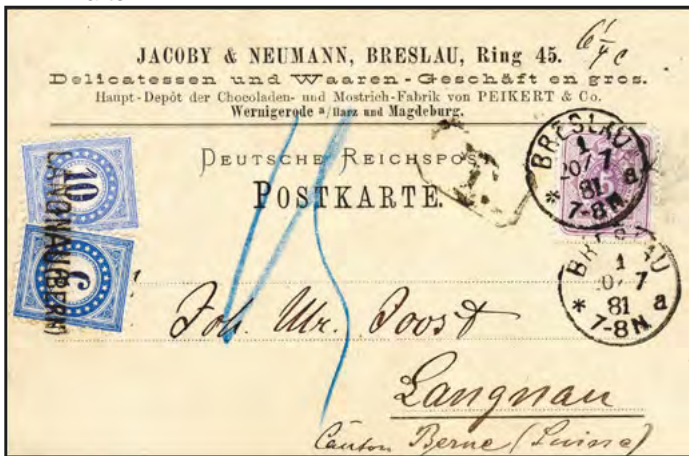 JACOBY & NEUMANN, BRESLAU, Ring 45.
Delicatessen und Waaren-Geschäft en gros.
Haupt-Depôt der Chocoladen- und Mostrich-Fabrik von PEIKERT & Co.
Wernigerode a/Harz und Magdeburg.
DEUTSCHE REICHSPOST
POSTKARTE.
T.
10
5
LANGNAU (BERN)
5
BRESLAU
1
20/7
81 a
* 7-8 N.
BRESLAU
1
20/7
81 a
* 7-8 N.
15
Joh. Ulr. Joost
Langnau
Canton Berne (Suisse)